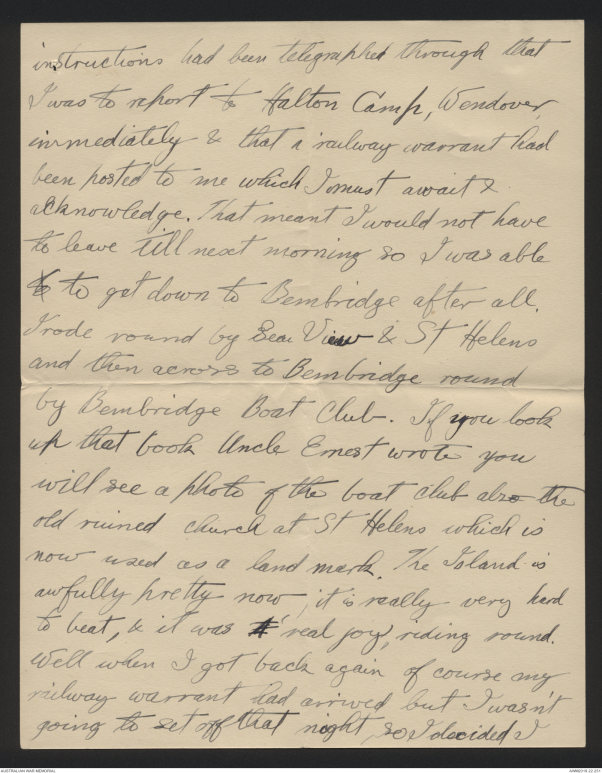 instructions had been telegraphed through that
I was to report to Halton Camp, Wendover,
immediately & that a railway warrant had
been posted to me which I must await &
acknowledge. That meant I would not have
to leave till next morning so I was able
to to get down to Bembridge after all.
I rode round by Sea View & St Helens
and then across to Bembridge round
by Bembridge Boat Club. If you look
up that book Uncle Ernest wrote you
will see a photo of the boat club also the
old ruined church at St Helens which is
now used as a land mark. The Island is
awfully pretty now, it is really very hard
to beat, & it was real joy, riding round.
Well when I got back again of course my
railway warrant had arrived but I wasn't
going to set off that night, so I decided I
AUSTRALIAN WAR MEMORIAL